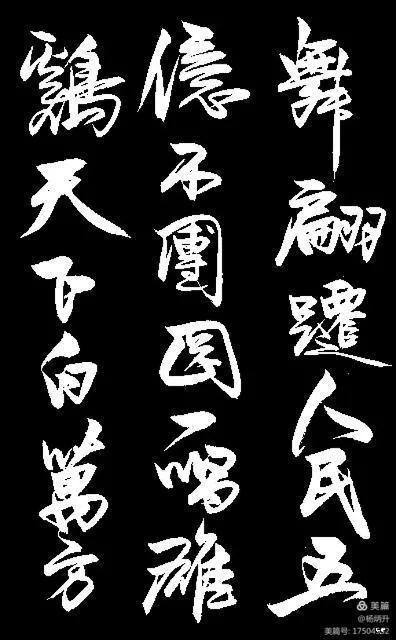 舞翩躚人民五
億不團圓一唱雄
鷄天下白萬方
美篇
@杨炳升
美篇号: